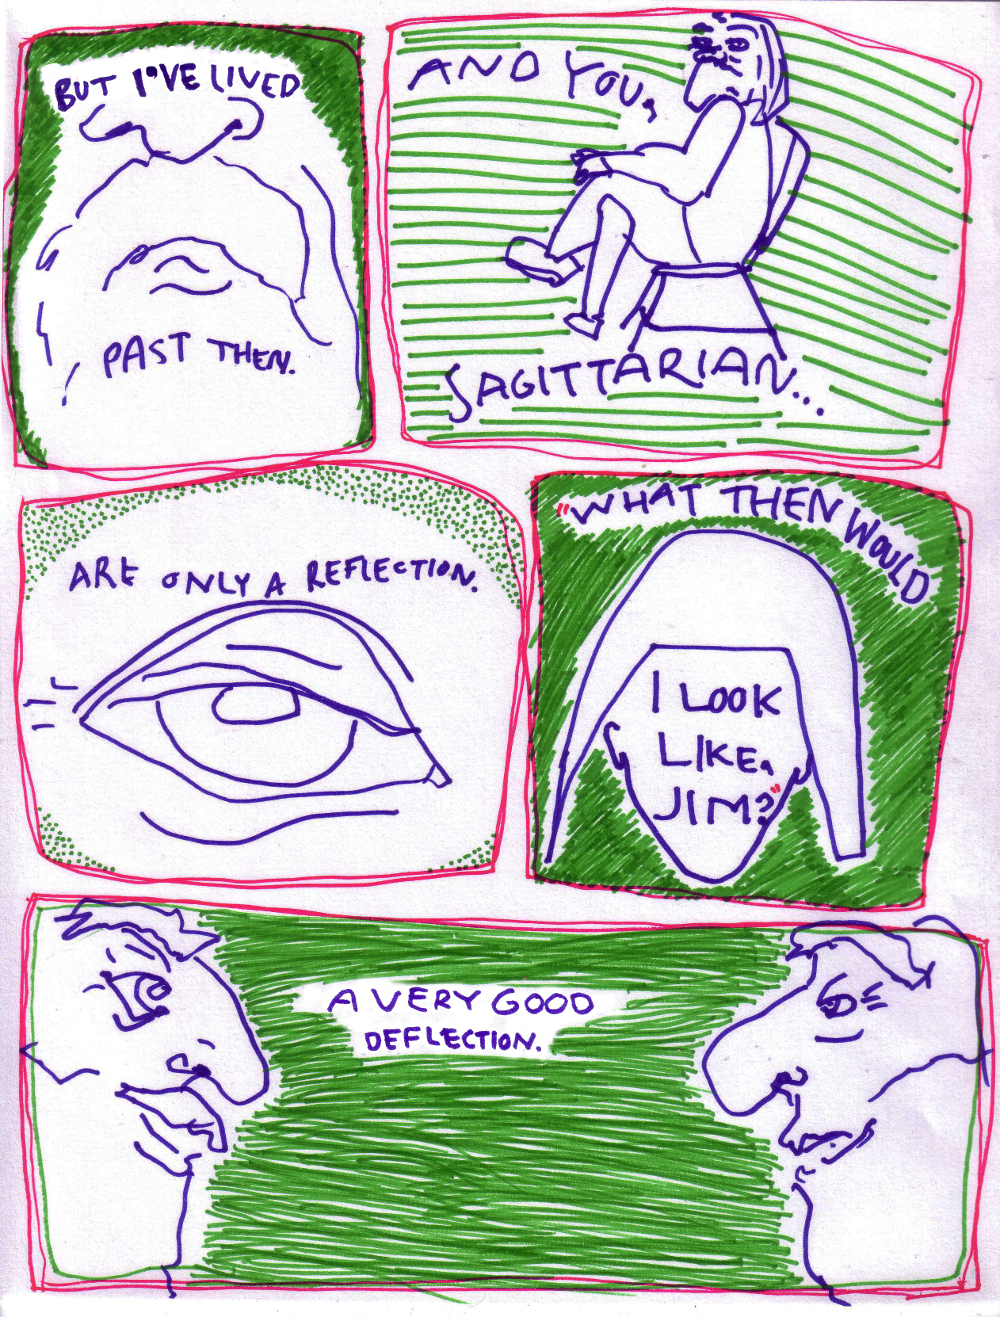 BUT I'VE LIVED
PAST THEN.
AND YOU,
SAGITTARIAN...
ARE ONLY A REFLECTION.
"WHAT THEN WOULD
I LOOK
LIKE,
JIM?"
A VERY GOOD
DEFLECTION.